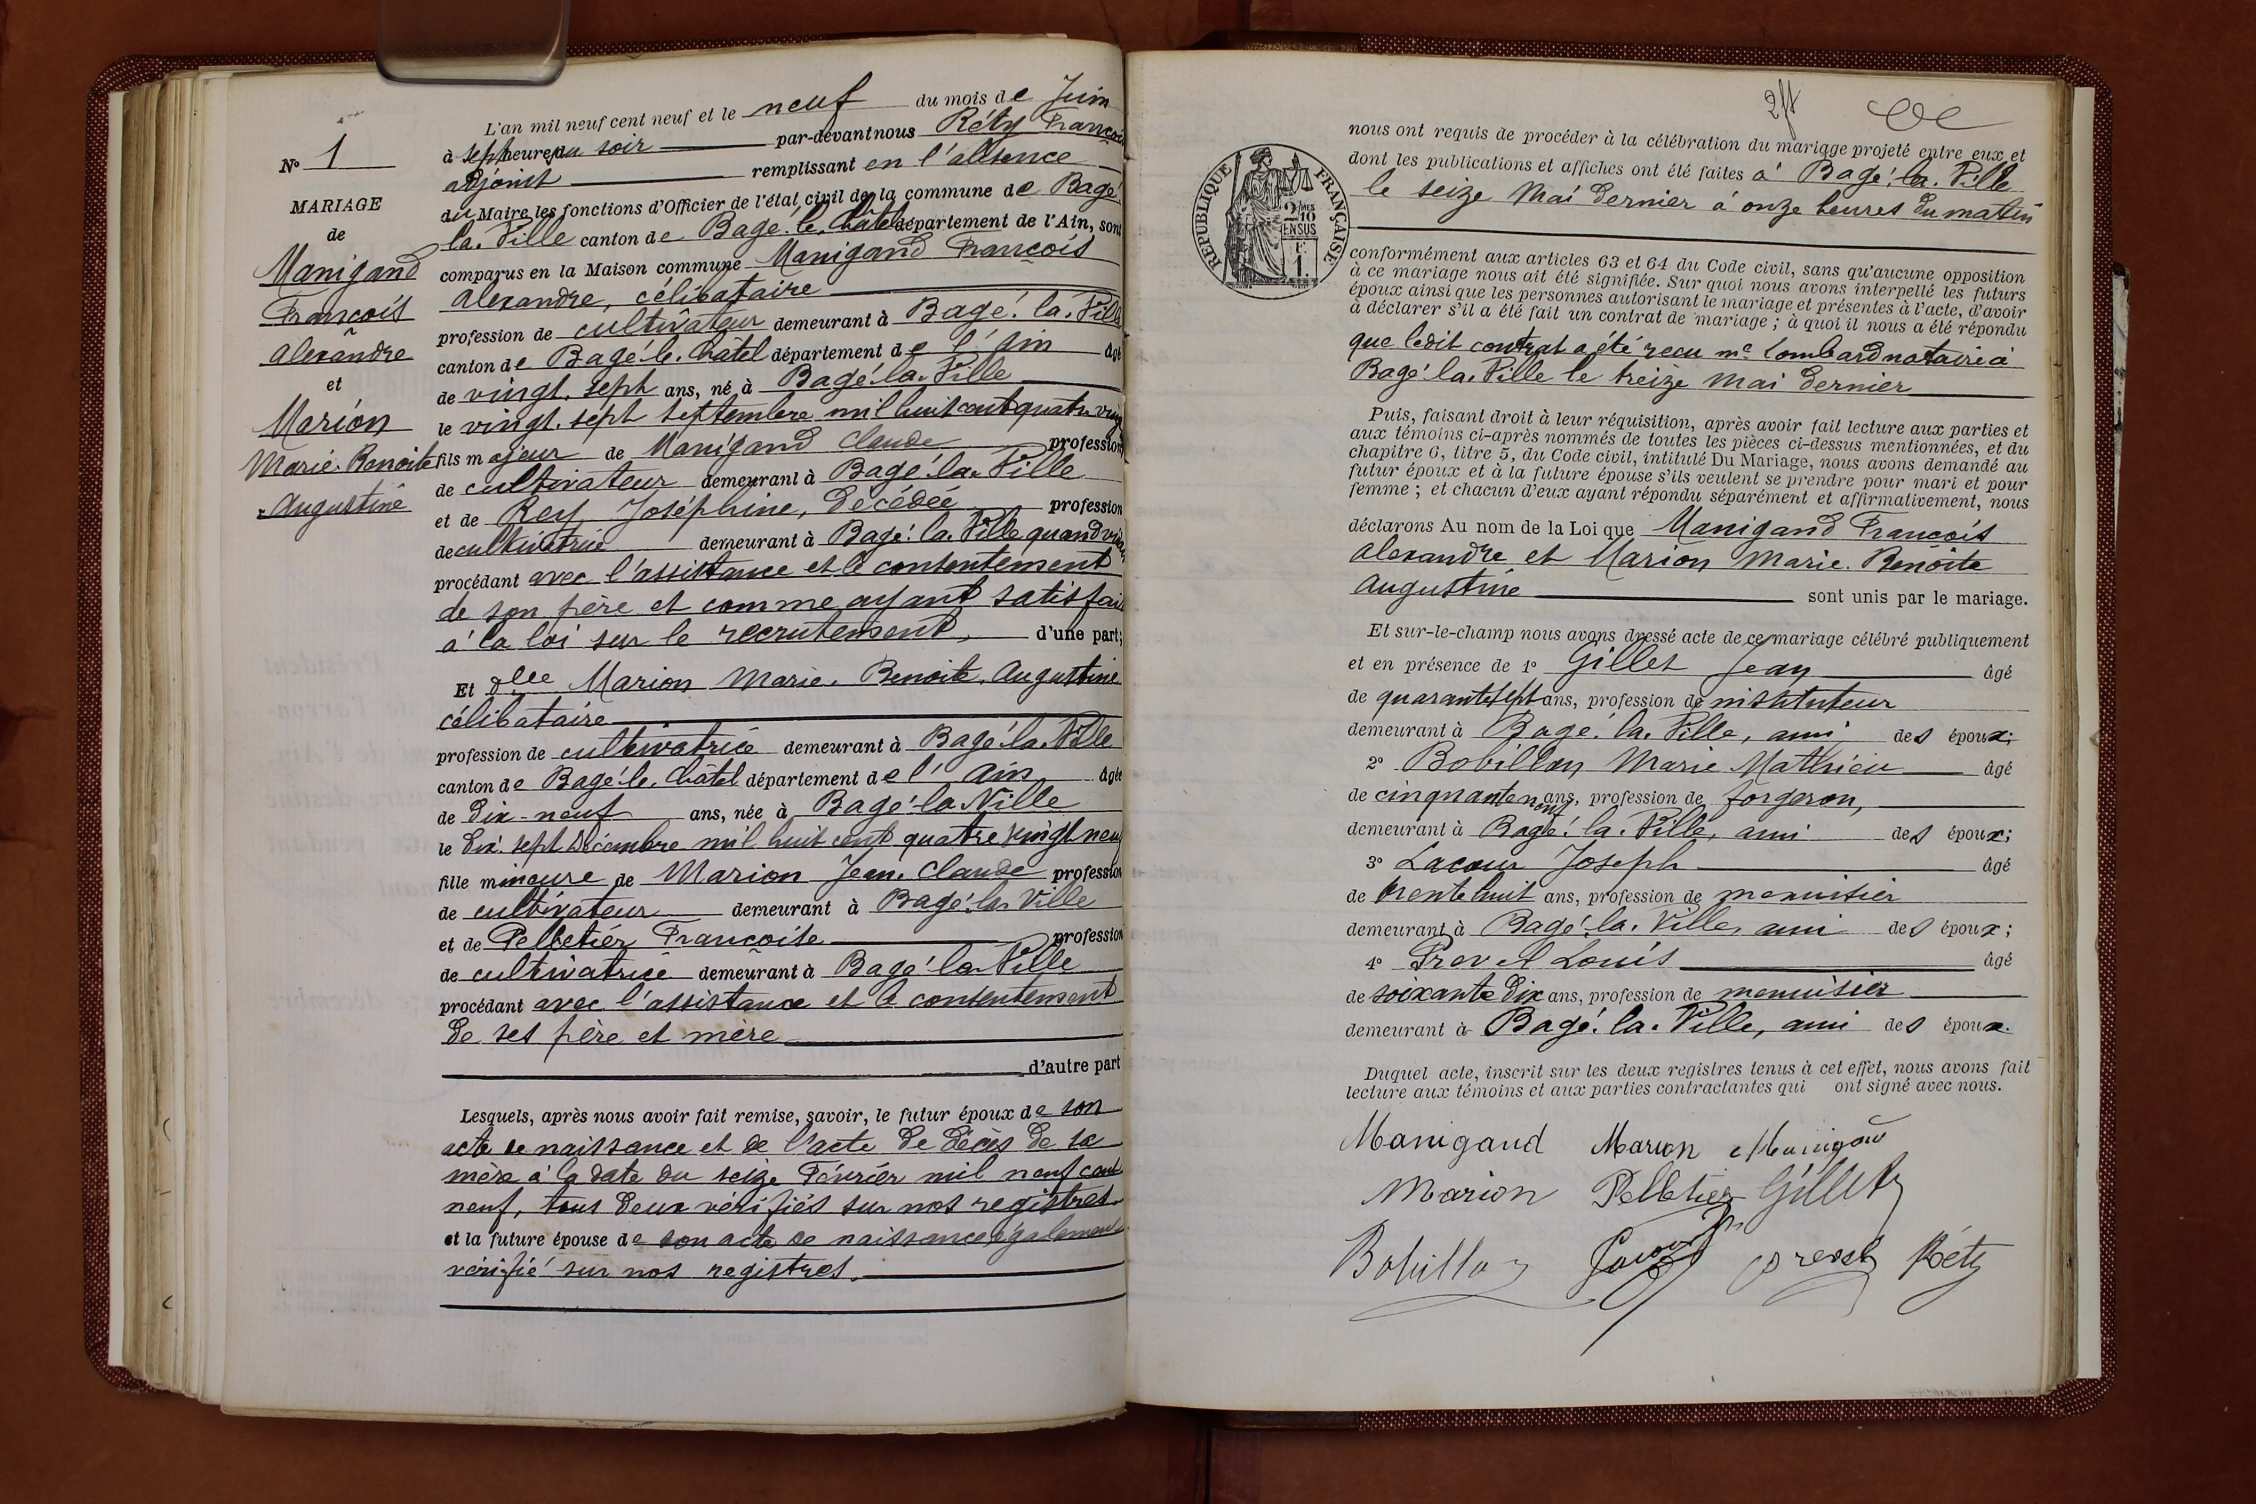 N° 1
MARIAGE
de
Manigand
François
Alexandre
et
Marion
Marie. Benoite
Augustine
L'an mil neuf cent neuf et le neuf du mois de Juin
à sept heures du soir par-devant nous Réty François
adjoint remplissant en l'absence
du Maire les fonctions d'Officier de l'état civil de la commune de Bagé.
la. Ville canton de Bagé. le. Châtel département de l'Ain, sont
comparus en la Maison commune Manigand François
Alexandre, célibataire
profession de cultivateur demeurant à Bagé. la. Ville
canton de Bagé. le. Châtel département de l'Ain âgé
de vingt. sept ans, né à Bagé. la. Ville
le vingt. sept septembre mil huit cent quatre vingt
fils majeur de Manigand Claude profession
de cultivateur demeurant à Bagé. la. Ville
et de Rey Joséphine, décédée profession
de cultivatrice demeurant à Bagé. la. Ville quand
procédant avec l'assistance et le consentement
de son père et comme ayant satisfait
à la loi sur le recrutement, d'une part;
Et dlle Marion Marie. Benoite. Augustine
célibataire
profession de cultivatrice demeurant à Bagé. la. Ville
canton de Bagé. le. Châtel département de l'Ain âgée
de dix-neuf ans, née à Bagé. la Ville
le dix. sept décembre mil huit cent quatre vingt neuf
fille mineure de Marion Jean. Claude profession
de cultivateur demeurant à Bagé. la. Ville
et de Pelletier Françoise profession
de cultivatrice demeurant à Bagé. la. Ville
procédant avec l'assistance et le consentement
de ses père et mère
d'autre part
Lesquels, après nous avoir fait remise, savoir, le futur époux de son
acte de naissance et de l'acte de décès de sa
mère à la date du seize Février mil neuf cent
neuf, tous deux vérifiés sur nos registres
et la future épouse de son acte de naissance également
vérifié sur nos registres.
2 ft
RÉPUBLIQUE FRANÇAISE
2/10 MES
EN SUS
1 F.
nous ont requis de procéder à la célébration du mariage projeté entre eux et
dont les publications et affiches ont été faites à Bagé. la. Ville
le seize Mai dernier à onze heures du matin
conformément aux articles 63 et 64 du Code civil, sans qu'aucune opposition
à ce mariage nous ait été signifiée. Sur quoi nous avons interpellé les futurs
époux ainsi que les personnes autorisant le mariage et présentes à l'acte, d'avoir
à déclarer s'il a été fait un contrat de mariage; à quoi il nous a été répondu
que ledit contrat a été reçu me Lombard notaire à
Bagé. la. Ville le treize Mai dernier
Puis, faisant droit à leur réquisition, après avoir fait lecture aux parties et
aux témoins ci-après nommés de toutes les pièces ci-dessus mentionnées, et du
chapitre 6, titre 5, du Code civil, intitulé Du Mariage, nous avons demandé au
futur époux et à la future épouse s'ils veulent se prendre pour mari et pour
femme; et chacun d'eux ayant répondu séparément et affirmativement, nous
déclarons Au nom de la Loi que Manigand François
Alexandre et Marion Marie. Benoite
Augustine sont unis par le mariage.
Et sur-le-champ nous avons dressé acte de ce mariage célébré publiquement
et en présence de 1° Gillet Jean âgé
de quarante sept ans, profession de instituteur
demeurant à Bagé. la. Ville, ami des époux;
2° Bobillon Marie Mathieu âgé
de cinquante neuf ans, profession de forgeron,
demeurant à Bagé. la. Ville, ami des époux;
3° Lacour Joseph âgé
de trente huit ans, profession de menuisier
demeurant à Bagé. la. Ville, ami des époux;
4° Prevel Louis âgé
de soixante dix ans, profession de menuisier
demeurant à Bagé. la. Ville, ami des époux.
Duquel acte, inscrit sur les deux registres tenus à cet effet, nous avons fait
lecture aux témoins et aux parties contractantes qui ont signé avec nous.
Manigand Marion Manigand
Marion Pelletier Gillet
Bobillon Lacour Prevel Réty